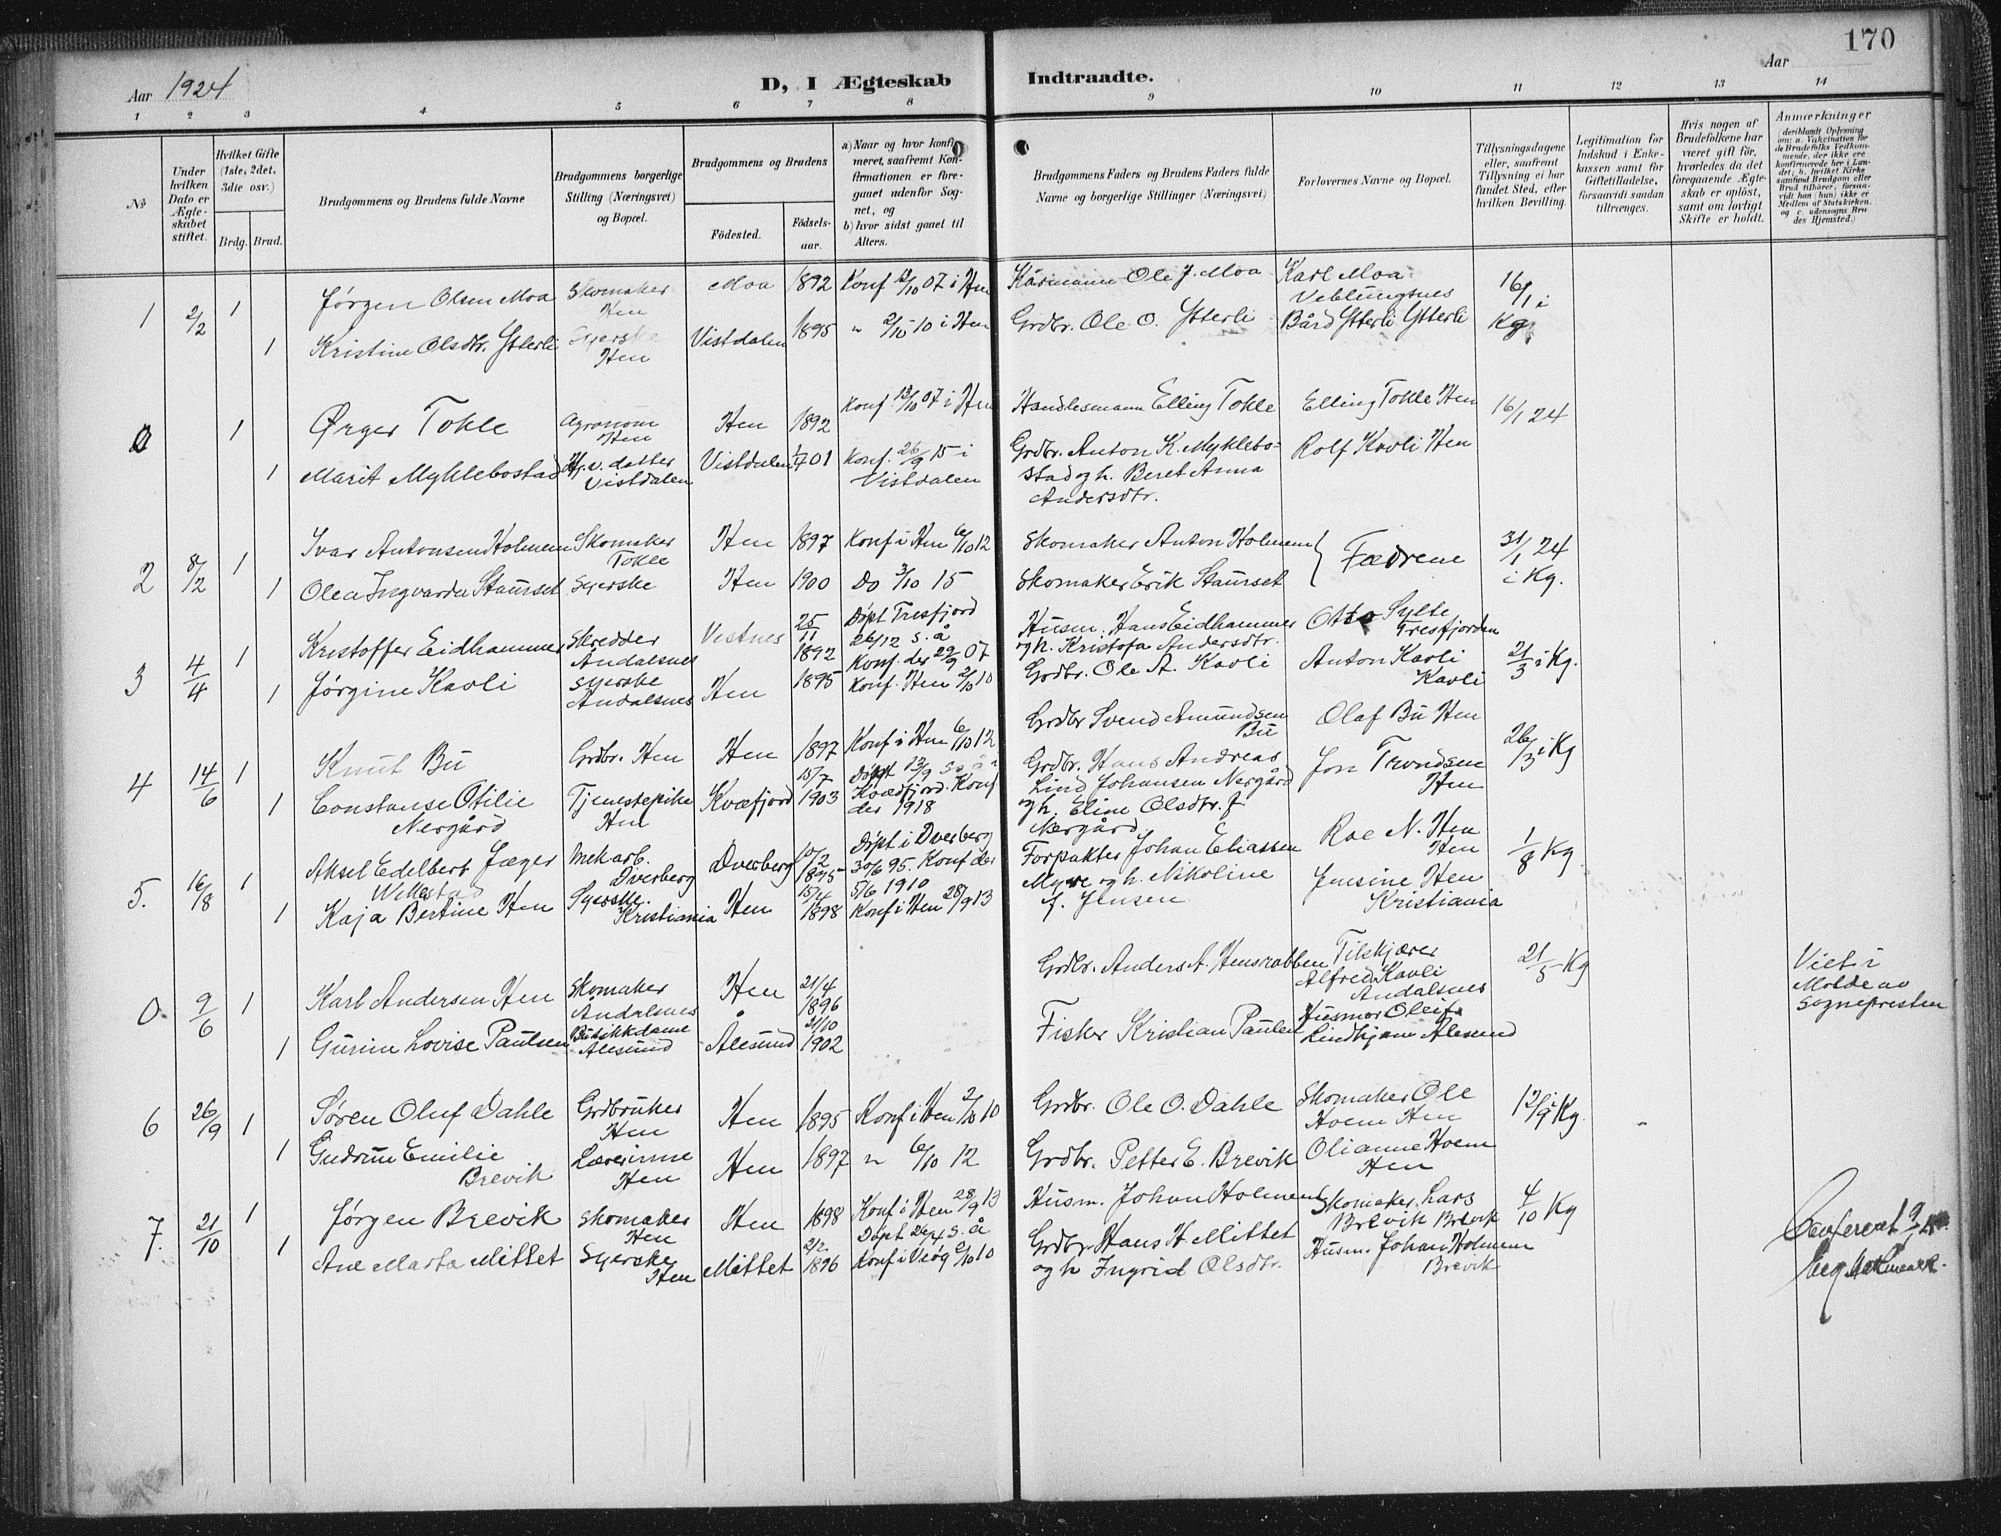 170
Aar 1924
D, I Ægteskab Indtraadte.
Aar
1 2 3 4 5 6 7 8 9 10 11 12 13 14
No
Under hvilken Dato er Ægteskabet stiftet.
Hvilket Gifte (1ste, 2det, 3die osv.)
Brdg. Brud.
Brudgommens og Brudens fulde Navne
Brudgommens borgerlige Stilling (Næringsvei) og Bopæl.
Brudgommens og Brudens
Födested. Födselsaar.
a) Naar og hvor konfirmeret, saafremt Konfirmationen er foregaaet udenfor Sognet, og
b) hvor sidst gaaet til Alters.
Brudgommens Faders og Brudens Faders fulde Navne og borgerlige Stillinger (Næringsvei)
Forlovernes Navne og Bopæl.
Tillysningsdagene eller, saafremt Tillysning ei har fundet Sted, efter hvilken Bevilling.
Legitimation for Indskud i Enkekassen samt for Giftetilladelse, forsaavidt saadan tiltrænges.
Hvis nogen af Brudefolkene har været gift før, hvorledes da det foregaaende Ægteskab er oplöst, samt om lovligt Skifte er holdt.
Anmærkninger
(deriblandt Oplysning om: a. Vaksination for de Brudefolks Vedkommende, der ikke ere konfirmerede her i Landet; b. hvilket Kirkesamfund Brudgom eller Brud tilhører, forsaavidt han (hun) ikke er Medlem af Statskirken, og c. udensogns Brudes Hjemsted.)
1 2/2 1 Jørgen Olsen Moa Skomaker Hen Moa 1892 Konf 13/10 07 i Hen Kårmann Ole J. Moa Karl Moa Veblungsnes 16/1 i Kg.
1 Kristine Olsdtr. Ytterli Syerske Hen Vistdalen 1895 " 2/10 10 i Hen Grdbr. Ole O. Ytterli Bård Ytterli Ytterli
0 1 Ørger Tokle Agronom Hen Hen 1892 Konf. 13/10 07 i Hen Handlesmann Elling Tokle Elling Tokle Hen 16/1 24
1 Marit Myklebostad Hj.v. datter Vistdalen Vistdalen 1/7 01 Konf. 26/9 15 i Vistdalen Grdbr. Anton K. Myklebostad og h. Beret Anna Andersdtr. Rolf Kavli Hen
2 8/2 1 Ivar Antonsen Holmem Skomaker Tokle Hen 1897 Konf i Hen 6/10 12 Skomaker Anton Holmem Fædrene 31/1 24 i Kg.
1 Olea Ingvarda Staurset Syerske Hen 1900 Do 3/10 15 Skomaker Erik Staurset
3 4/4 1 Kristoffer Eidhammer Skredder Andalsnes Vestnes 25/11 1892 Døpt Tresfjord 26/12 s.å Konf. der 29/9 07 Husm. Hans Eidhammer og h. Kristofa Andersdtr. Otto Sylte Tresfjorden 21/3 i Kg.
1 Jørgine Kavli Syerske Andalsnes Hen 1895 Konf. Hen 2/10 10 Grdbr. Ole A. Kavli Anton Kavli Kavli
4 14/6 1 Knut Bu Grdbr. Hen Hen 1897 Konf i Hen 6/10 12 Grdbr Svend Amundsen Bu Olaf Bu Hen 26/3 i Kg
1 Constanse Otilie Nergård Tjenestepike Hen Kvæfjord 15/7 1903 Døpt 13/9 s.å i Kvædfjord. Konf der 1918 Grdbr. Hans Andreas Lind Johansen Nergård og h. Eline Olsdtr. f. Nergård Jon Trondsen Hen
5. 16/8 1 Aksel Edelbert Jæger Wikestad Mek arb. Dverberg Dverberg 10/2 1895 Døpt i Dverberg 30/6 95. Konf der 5/6 1910 Forpakter Johan Eliassen Myre og h. Nikoline f. Jensen Roe N. Hen Hen 1/8 Kg
1 Kaja Bertine Hen Syerske. Kristiania Hen 15/4 1898 Konf i Hen 28/9 13 Jensine Hen Kristiania
0. 9/6 1 Karl Andersen Hen Skomaker Åndalsnes Hen 21/4 1896 Grdbr. Anders A. Hensrabben Tilskjærer Alfred Kavli Andalsnes 21/5 Kg Viet i Molde av Sognepresten
1 Gurine Lovise Paulsen Butikkdame Alesund Ålesund 21/10 1902 Fisker Kristian Paulsen Husmor Oleif Lindkjøm Alesund
6 26/9 1 Søren Oluf Dahle Grdbruker Hen Hen 1895 Konf i Hen 2/10 10 Grdbr. Ole O. Dahle Skomaker Ole Hoem Hen 12/9 i Kg.
1 Gudrun Emilie Brevik Lærerinne Hen Hen 1897 " 6/10 12 Grdbr. Petter E. Brevik Olianne Hoem Hen
7. 21/10 1 Jørgen Brevik Skomaker Hen Hen 1898 Konf i Hen 28/9 13 Husm. Johan Holmem Skomaker Lars Brevik Brevik 4/10 Kg
1 Ane Marta Mittet Syerske Hen Mittet 2/2 1896 Døpt 26/4 s.å Konf i Veøg 2/10 10 Grdbr. Hans H. Mittet og h Ingrid Olsdtr. Husm. Johan Holmem Brevik
Conferert